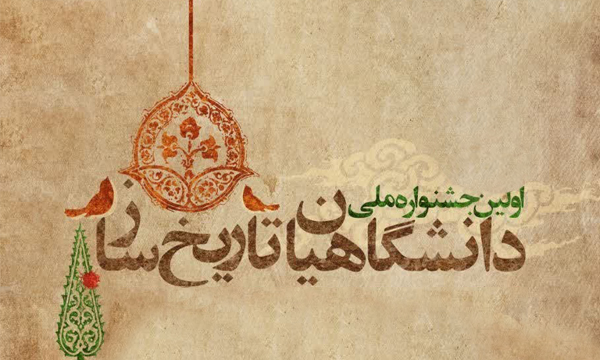 اولین جشنواره ملی
دانشگاهیان تاریخ ساز